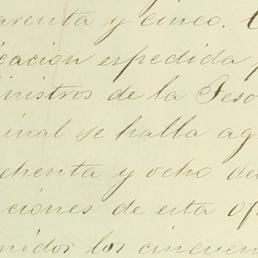 arenta y cinco. C
icacion espedida p
inistros de la Teso
inal se halla ag
chenta y ocho de
ciones de esta of
nidos los cincuen